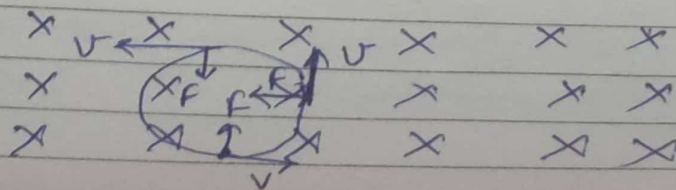 × × × × × ×
v v
× × F F × × ×
F
× × × × × ×
v